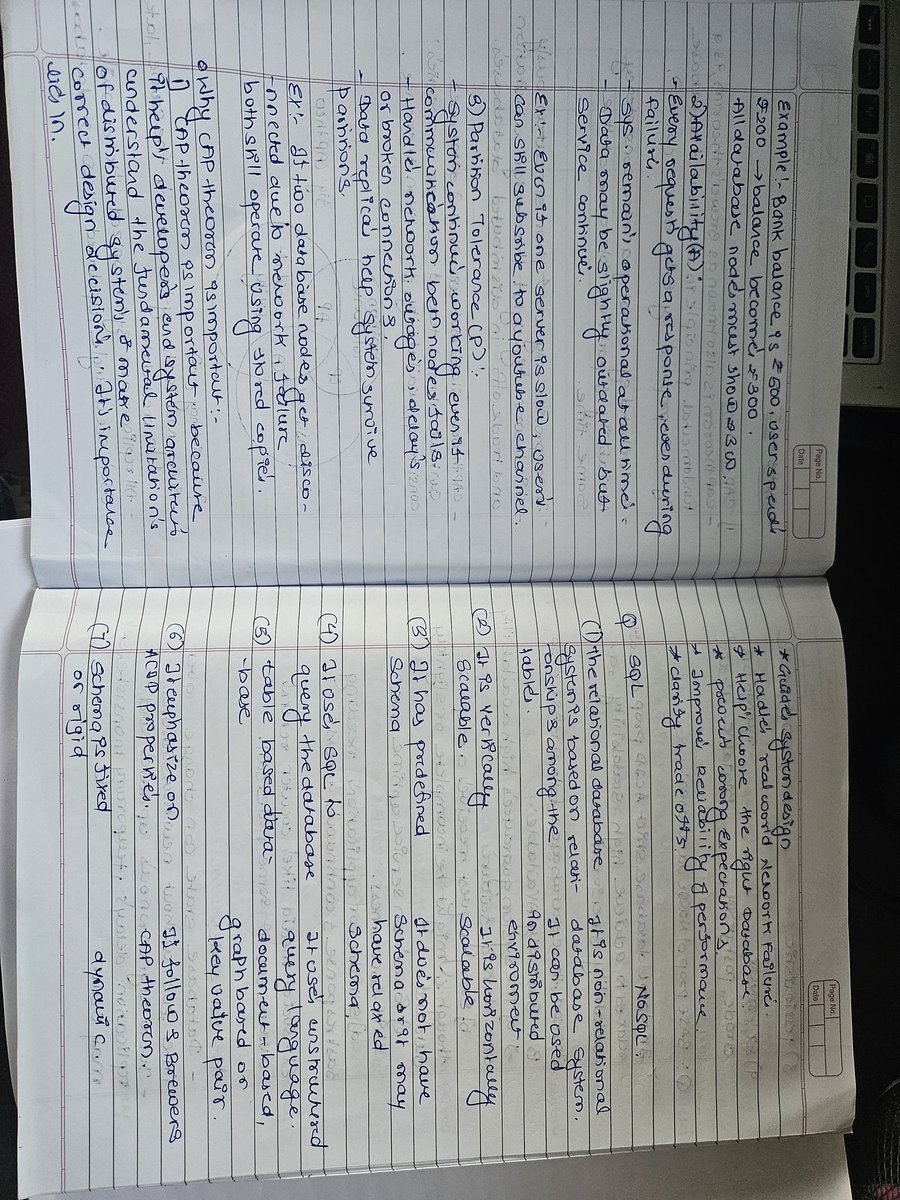 Page No.
Date
Example:- Bank balance is ₹500, user spends
₹200 → balance becomes 300.
All database nodes must show 300.
2) Availability (A):
- Every request gets a response, even during
failure.
- Sys. remains operational at all times.
- Data may be slightly outdated but
service continues.
Ex:- Even if one server is slow, users
can still subscribe to a youtube channel.
3) Partition Tolerance (P):
- System continues working even if
communication betn nodes fails.
- Handles network outages, delays
or broken connections.
- Data replicas help system survive
partitions.
Ex:- If two database nodes get disco-
-nnected due to network failure
both still operate using stored copies.
Why CAP theorem is important:-
1) CAP theorem is important because
it helps developers and system architects
understand the fundamental limitations
of distributed systems & make
correct design decisions. Its importance
lies in.
Page No.
Date
* Guides system design
* Handles real world Network Failures
* Helps choose the right Database
* prevents wrong Expectations.
* Improves Reliability & performance.
* clarify trade offs.
Q SQL NoSQL.
(1) the relational database It is non-relational
system is based on relati- database system.
-onships among the It can be used
tables. in distributed
environment
(2) It is vertically It is horizontally
Scalable. Scalable
(3) It has predefined It does not have
Schema Schema or it may
have relaxed
Schema.
(4) It uses SQL to It uses unstructured
query the database query language.
(5) table based data- document-based,
-base graph based or
key value pair.
(6) It emphasize on It follows Brewers
ACID properties. CAP theorem.
(7) Schema is fixed dynamic
or rigid